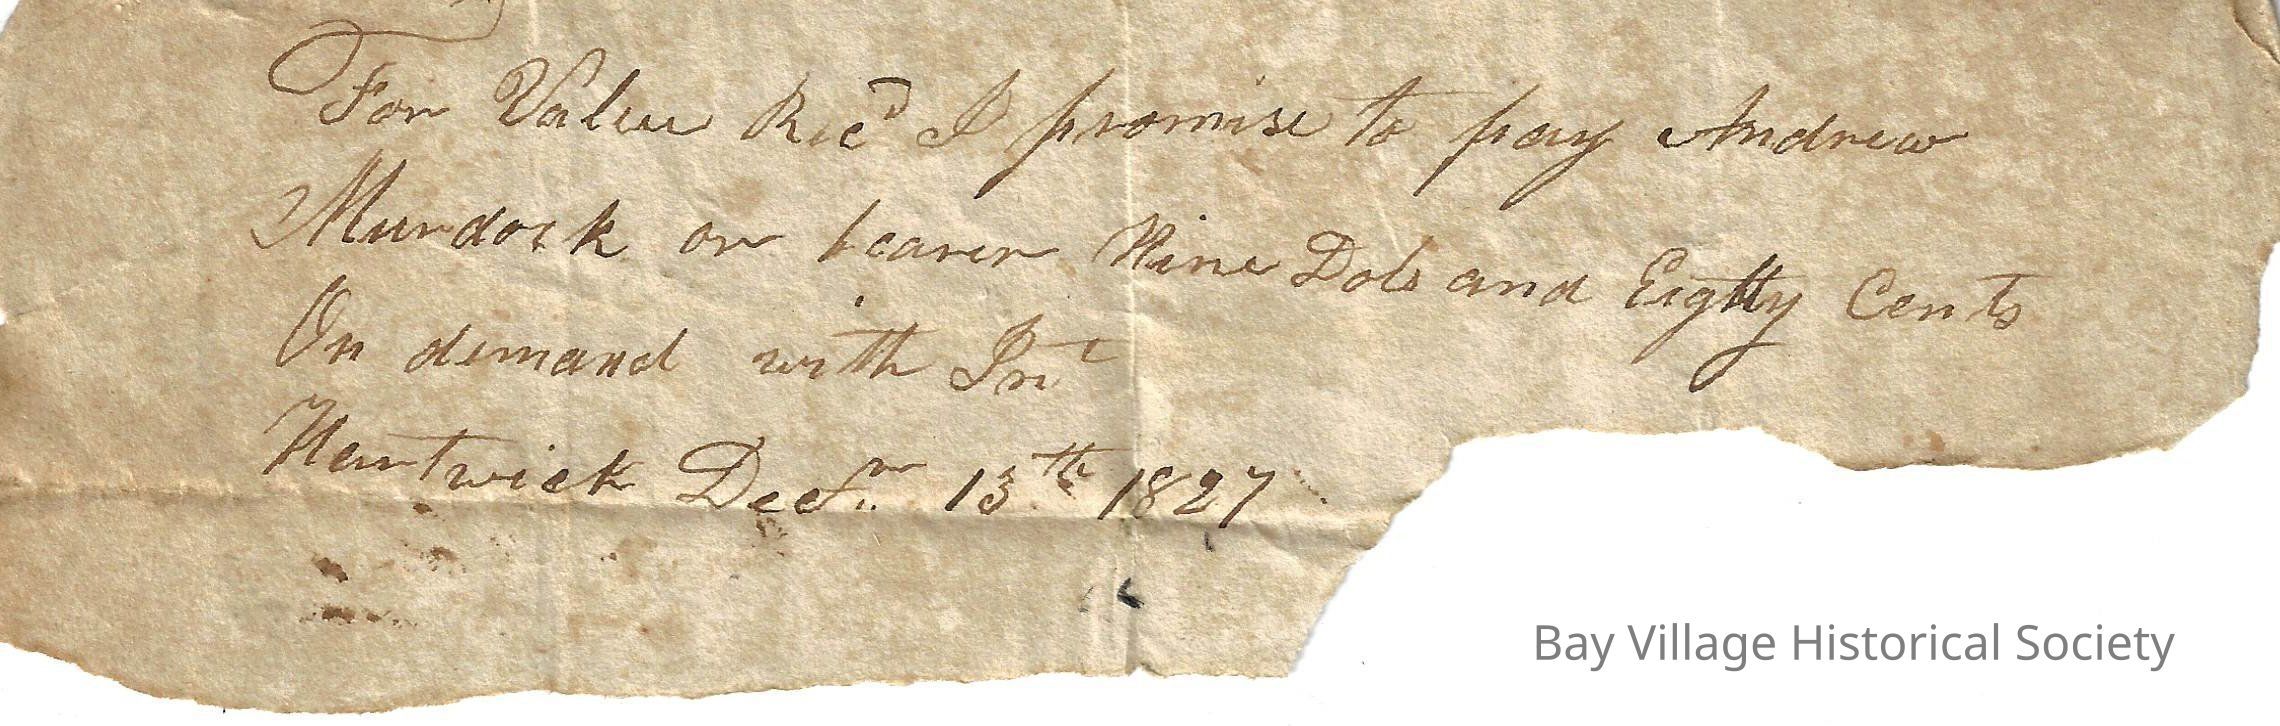 For Value Rec'd I promise to pay Andrew
Murdock or bearer Nine Dols and Eighty Cents
On demand with Int
Hartwick Decr 13th 1827
Bay Village Historical Society